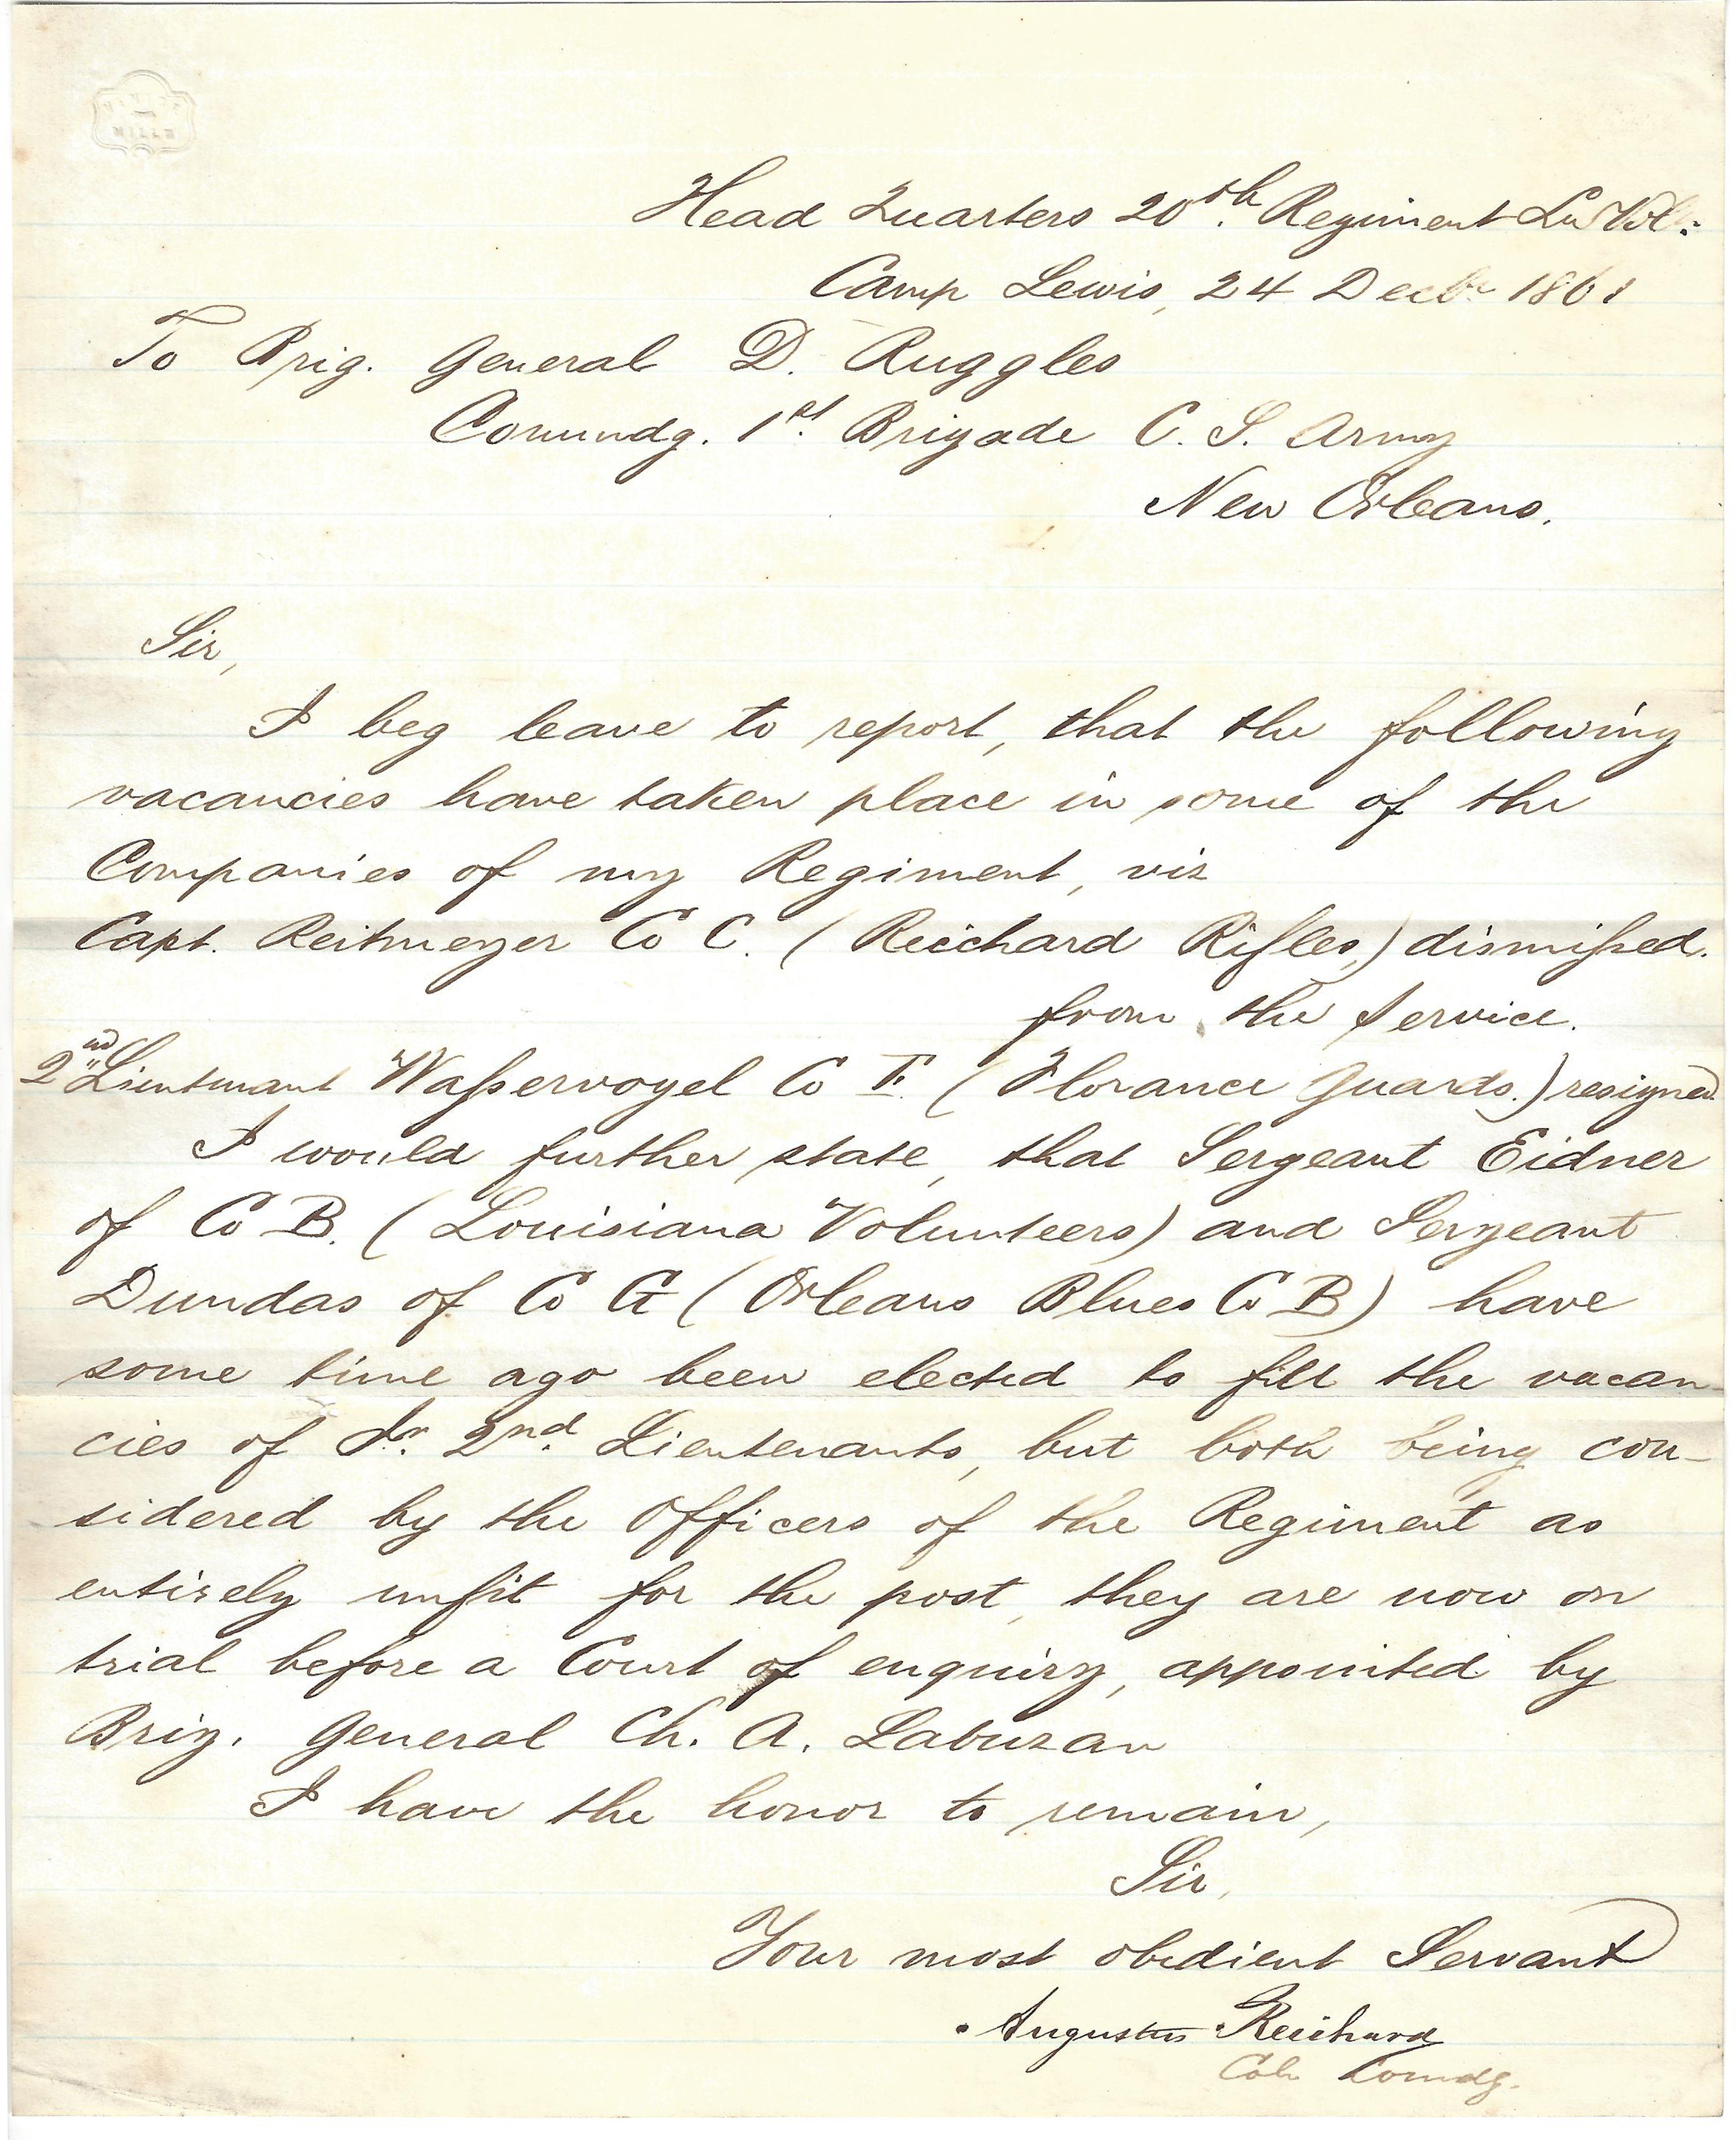 Head Quarters 20th. Regiment La Vol:
Camp Lewis, 24 Decbr 1861
To Brig. General D. Ruggles
Comundg. 1st. Brigade C. S. Army
New Orleans.
Sir,
I beg leave to report, that the following
vacancies have taken place in some of the
Companies of my Regiment, viz
Capt. Reitmeyer Co C. (Reichard Rifles,) dismißed.
from the Service.
2nd Lieutenant Waßervogel Co F. (Florance Guards.) resigned.
I would further state, that Sergeant Eidner
of Co B. (Louisiana Volunteers) and Sergeant
Dundas of Co G (Orleans Blues Co B) have
some time ago been elected to fill the vacan-
cies of Jr. 2nd. Lieutenants, but both being con-
sidered by the Officers of the Regiment as
entirely unfit for the post, they are now on
trial before a Court of enquiry, appointed by
Brig. General Ch. A. Labuzan
I have the honor to remain,
Sir,
Your most obedient Servant
Augustus Reichard
Col. Comdg.